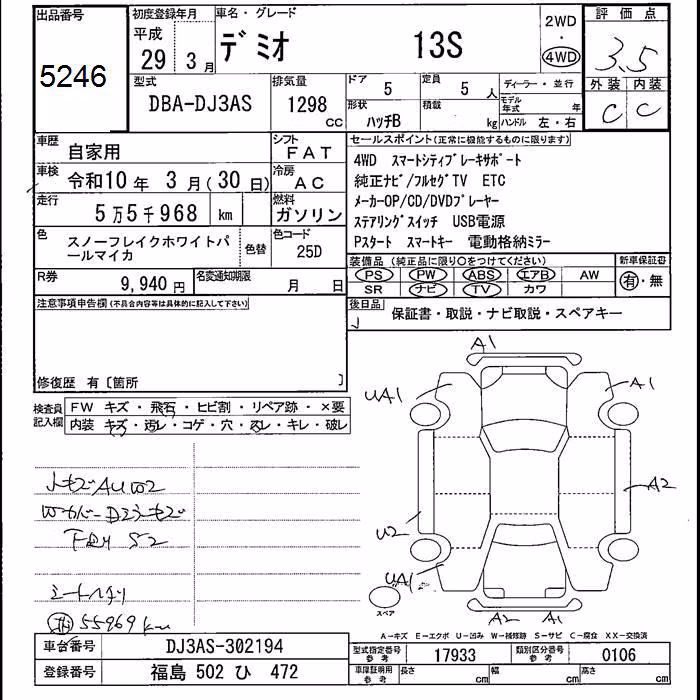 出品番号 初度登録年月 車名・グレード 2WD 評価点
5246 平成 29年 3月 デミオ 13S 4WD 3.5
型式 排気量 ドア 5 定員 5人 ディーラー・並行 外装 内装
DBA-DJ3AS 1298 cc 形状 ハッチB 積載 kg モデル年式 年 ハンドル 左・右 C C
車歴 自家用 シフト FAT セールスポイント(正常に機能するものに限ります)
車検 令和10年 3月(30日) 冷房 AC 4WD スマートシティブレーキサポート
純正ナビ/フルセグTV ETC
走行 5万5千968 km 燃料 ガソリン メーカーOP/CD/DVDプレーヤー
ステアリングスイッチ USB電源
色 スノーフレイクホワイトパールマイカ 色替 色コード 25D Pスタート スマートキー 電動格納ミラー
装備品(純正品に限り○をつけてください) 新車保証書
R券 9,940円 名変通知期限 月 日 PS PW ABS エアB AW 有・無
SR ナビ TV カワ
注意事項申告欄(不具合内容等は具体的に記入して下さい) 後日品 保証書・取説・ナビ取説・スペアキー
修復歴 有〔箇所 〕
検査員記入欄 FW キズ・飛石・ヒビ割・リペア跡・×要
内装 キズ・汚レ・コゲ・穴・スレ・キレ・破レ
A1
UA1 A1
A2
U2
UA1
A2 A1
スペア
S2
55969km
A-キズ E-エクボ U-凹み W-補修跡 S-サビ C-腐食 XX-交換済
車台番号 DJ3AS-302194 型式指定番号 参考 17933 類別区分番号 参考 0106
登録番号 福島 502 ひ 472 車庫証明用 参考 長さ cm 幅 cm 高さ cm